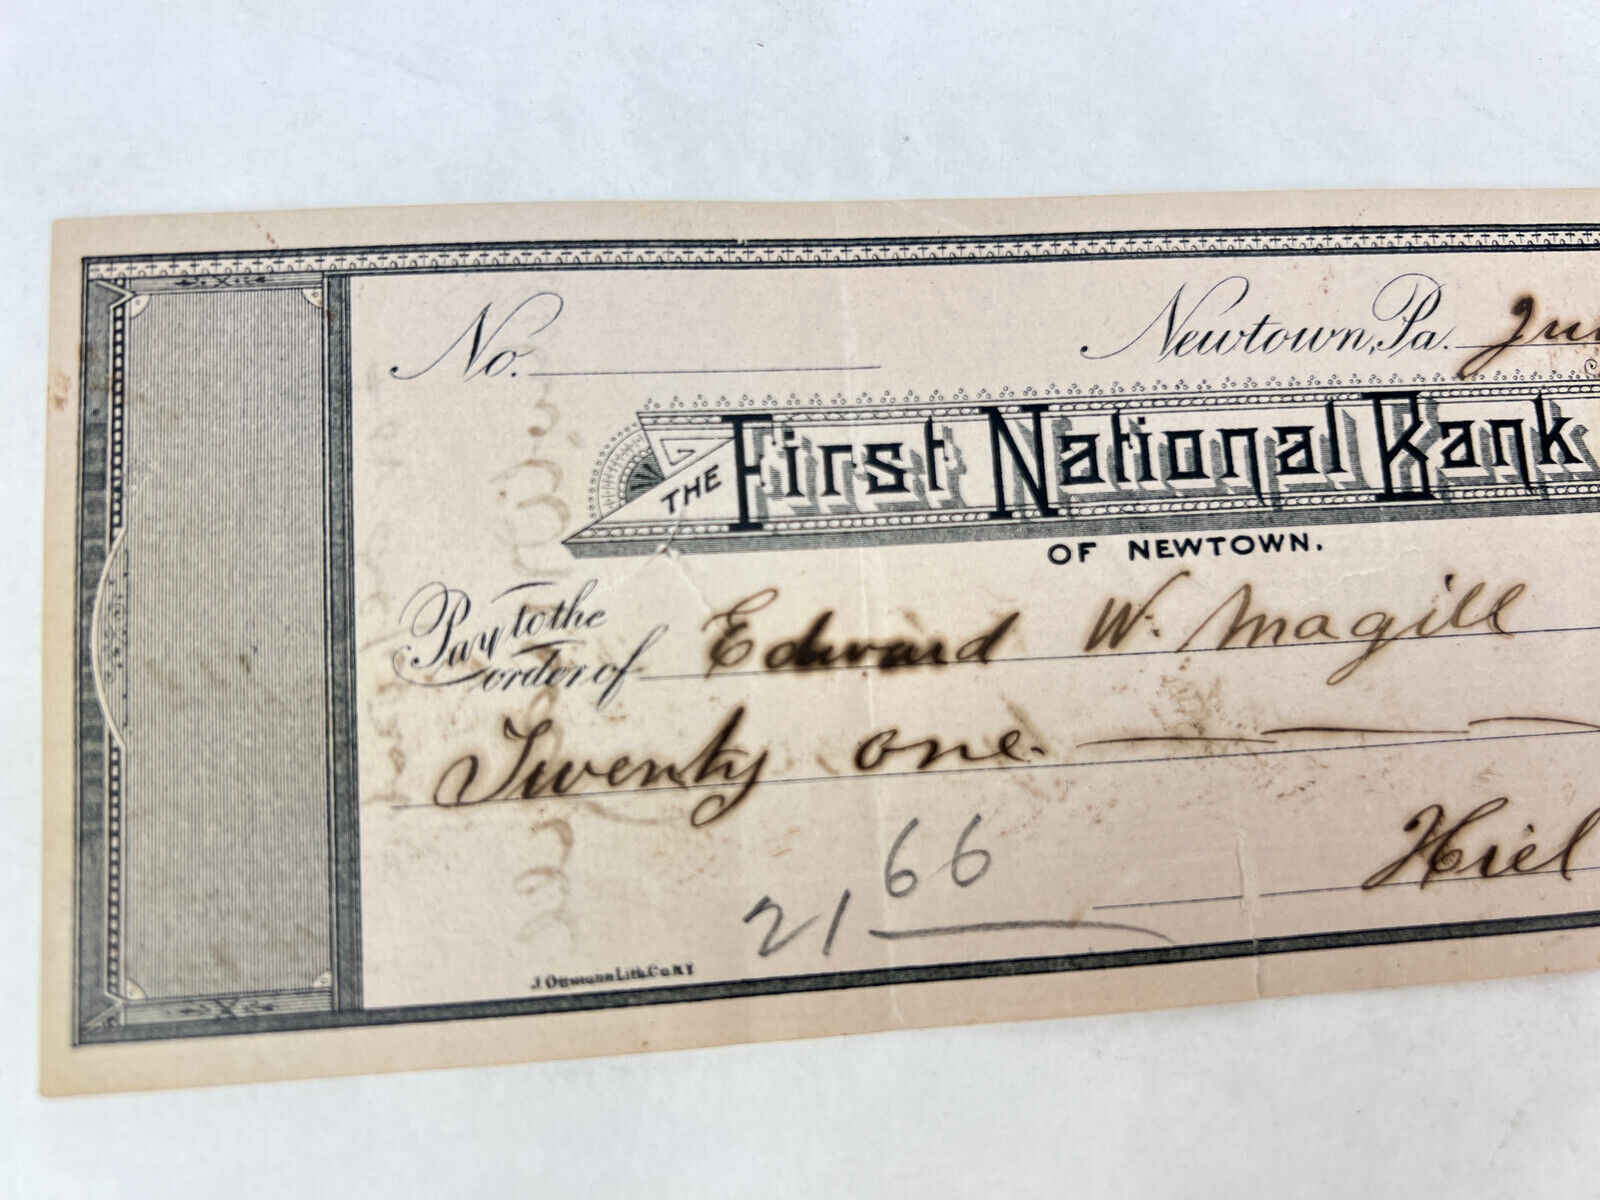 No.
Newtown, Pa.
THE First National Bank
OF NEWTOWN.
Pay to the order of Edward W. Magill
Twenty one
Hiel
21 66
J. Ottmann Lith. Co. N.Y